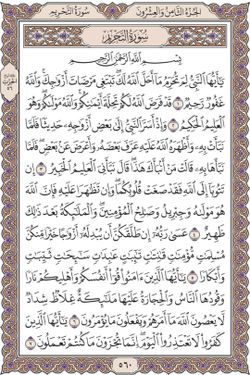 الجُزْءُ الثَّامِنُ وَالعِشْرُونَ سُورَةُ التَّحْرِيمِ
سُورَةُ التَّحْرِيمِ
بِسْمِ ٱللَّهِ ٱلرَّحْمَٰنِ ٱلرَّحِيمِ
يَٰٓأَيُّهَا ٱلنَّبِيُّ لِمَ تُحَرِّمُ مَآ أَحَلَّ ٱللَّهُ لَكَ تَبْتَغِي مَرْضَاتَ أَزْوَٰجِكَ وَٱللَّهُ
غَفُورٌ رَّحِيمٌ ١ قَدْ فَرَضَ ٱللَّهُ لَكُمْ تَحِلَّةَ أَيْمَٰنِكُمْ وَٱللَّهُ مَوْلَىٰكُمْ وَهُوَ
ٱلْعَلِيمُ ٱلْحَكِيمُ ٢ وَإِذْ أَسَرَّ ٱلنَّبِيُّ إِلَىٰ بَعْضِ أَزْوَٰجِهِۦ حَدِيثًا فَلَمَّا
نَبَّأَتْ بِهِۦ وَأَظْهَرَهُ ٱللَّهُ عَلَيْهِ عَرَّفَ بَعْضَهُۥ وَأَعْرَضَ عَنۢ بَعْضٍ فَلَمَّا
نَبَّأَهَا بِهِۦ قَالَتْ مَنْ أَنۢبَأَكَ هَٰذَا قَالَ نَبَّأَنِيَ ٱلْعَلِيمُ ٱلْخَبِيرُ ٣ إِن
تَتُوبَآ إِلَى ٱللَّهِ فَقَدْ صَغَتْ قُلُوبُكُمَا وَإِن تَظَٰهَرَا عَلَيْهِ فَإِنَّ ٱللَّهَ
هُوَ مَوْلَىٰهُ وَجِبْرِيلُ وَصَٰلِحُ ٱلْمُؤْمِنِينَ وَٱلْمَلَٰٓئِكَةُ بَعْدَ ذَٰلِكَ
ظَهِيرٌ ٤ عَسَىٰ رَبُّهُۥٓ إِن طَلَّقَكُنَّ أَن يُبْدِلَهُۥٓ أَزْوَٰجًا خَيْرًا مِّنكُنَّ
مُسْلِمَٰتٍ مُّؤْمِنَٰتٍ قَٰنِتَٰتٍ تَٰٓئِبَٰتٍ عَٰبِدَٰتٍ سَٰٓئِحَٰتٍ ثَيِّبَٰتٍ
وَأَبْكَارًا ٥ يَٰٓأَيُّهَا ٱلَّذِينَ ءَامَنُوا۟ قُوٓا۟ أَنفُسَكُمْ وَأَهْلِيكُمْ نَارًا
وَقُودُهَا ٱلنَّاسُ وَٱلْحِجَارَةُ عَلَيْهَا مَلَٰٓئِكَةٌ غِلَاظٌ شِدَادٌ
لَّا يَعْصُونَ ٱللَّهَ مَآ أَمَرَهُمْ وَيَفْعَلُونَ مَا يُؤْمَرُونَ ٦ يَٰٓأَيُّهَا ٱلَّذِينَ
كَفَرُوا۟ لَا تَعْتَذِرُوا۟ ٱلْيَوْمَ إِنَّمَا تُجْزَوْنَ مَا كُنتُمْ تَعْمَلُونَ ٧
٥٦٠